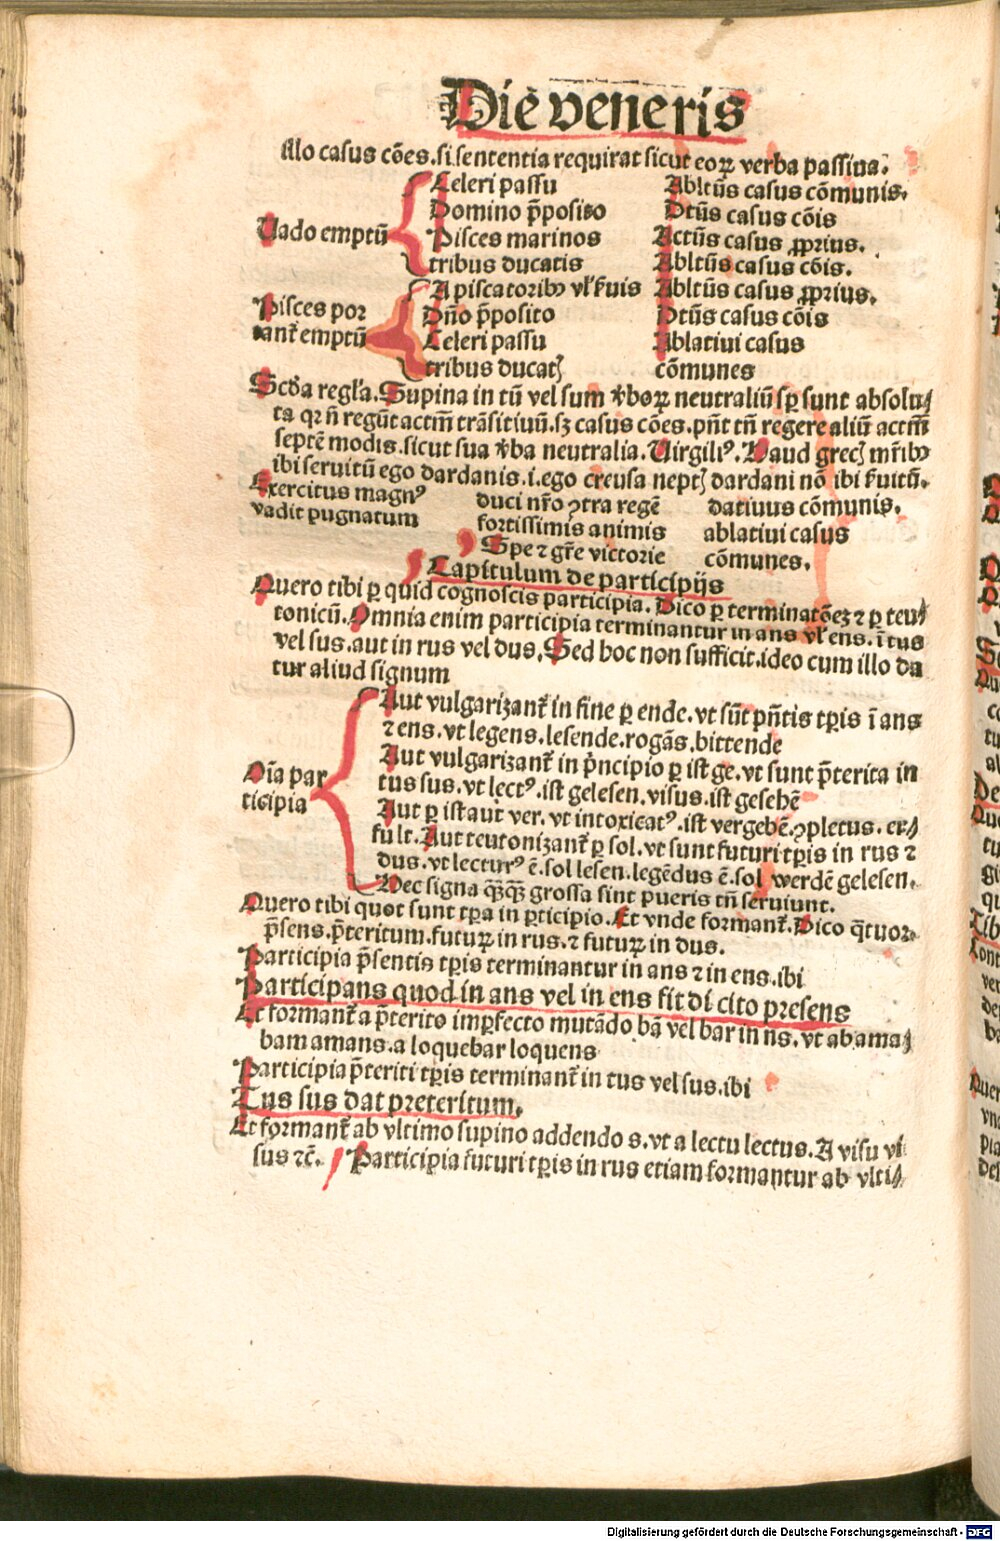 Die veneris
Alo casus cōes.si sententia requirat sicut eoꝝ verba passiua.
Uado emptū
Celeri passu Abltūs casus cōmunis.
Domino p̄posito Dtūs casus cōis
Pisces marinos Actūs casus ꝓprius.
tribus ducatis Abltūs casus cōis.
Pisces por
tant᷑ emptū
A piscatoribꝰ vl̓ ẜuis Abltūs casus ꝓprius.
Dn̄o p̄posito Dtūs casus cōis
Celeri passu Ablatiui casus
tribus ducatꝭ cōmunes
Scd̓a regl̓a. Supina in tū vel sum v̓boꝝ neutraliū sp̄ sunt absolu⸗
ta qꝛ n̄ regūt actm̄ trāsitiuū.sꝫ casus cōes.pn̄t tn̄ regere aliū actm̄
septē modis.sicut sua v̓ba neutralia. Uirgiliꝰ. Haud grecꝭ mr̄ibꝰ
ibi seruitū ego dardanis.i.ego creusa neptꝭ dardani nō ibi ẜuitū.
Exercitus magnꝰ duci nr̄o ↄtra regē datiuus cōmunis.
vadit pugnatum fortissimis animis ablatiui casus
Spe ⁊ gr̄e victorie cōmunes.
Capitulum de participijs
Quero tibi ꝑ quid cognoscis participia. Dico ꝑ terminatōeꝫ ⁊ ꝑ teu⸗
tonicū. Omnia enim participia terminantur in ans vl̓ ens. ī tus
vel sus.aut in rus vel dus. Sed hoc non sufficit.ideo cum illo da
tur aliud signum
Oīa par
ticipia
Aut vulgarizant᷑ in fine ꝑ ende.vt sūt pn̄tis tp̄is ī ans
⁊ ens.vt legens.lesende.rogās.bittende
Aut vulgarizant᷑ in p̓ncipio ꝑ ist ge.vt sunt p̄terita in
tus sus.vt lectꝰ.ist gelesen.visus.ist gesehē
Aut ꝑ ist aut ver.vt intoxicatꝰ.ist vergebē.ↄpletus.er⸗
fult. Aut teutonizant᷑ ꝑ sol.vt sunt futuri tp̄is in rus ⁊
dus.vt lecturꝰ ē.sol lesen.legēdus ē.sol werdē gelesen.
Hec signa qꝫqꝫ grossa sint pueris tn̄ seruiunt.
Quero tibi quot sunt tp̄a in ꝑticipio. Et vnde formant᷑. Dico q̄tuor.
p̄sens.p̄teritum.futuꝝ in rus.⁊ futuꝝ in dus.
Participia p̄sentis tp̄is terminantur in ans ⁊ in ens.ibi
Participans quod in ans vel in ens fit dī cito presens
Et formant᷑ a p̄terito imꝑfecto mutādo bā vel bar in ns.vt ab ama⸗
bam amans.a loquebar loquens
Participia p̄teriti tp̄is terminant᷑ in tus vel sus.ibi
Tus sus dat preteritum.
Et formant᷑ ab vltimo supino addendo s.vt a lectu lectus. A visu vi⸗
sus ⁊c̄. Participia futuri tp̄is in rus etiam formantur ab vlti⸗
Digitalisierung gefördert durch die Deutsche Forschungsgemeinschaft - DFG